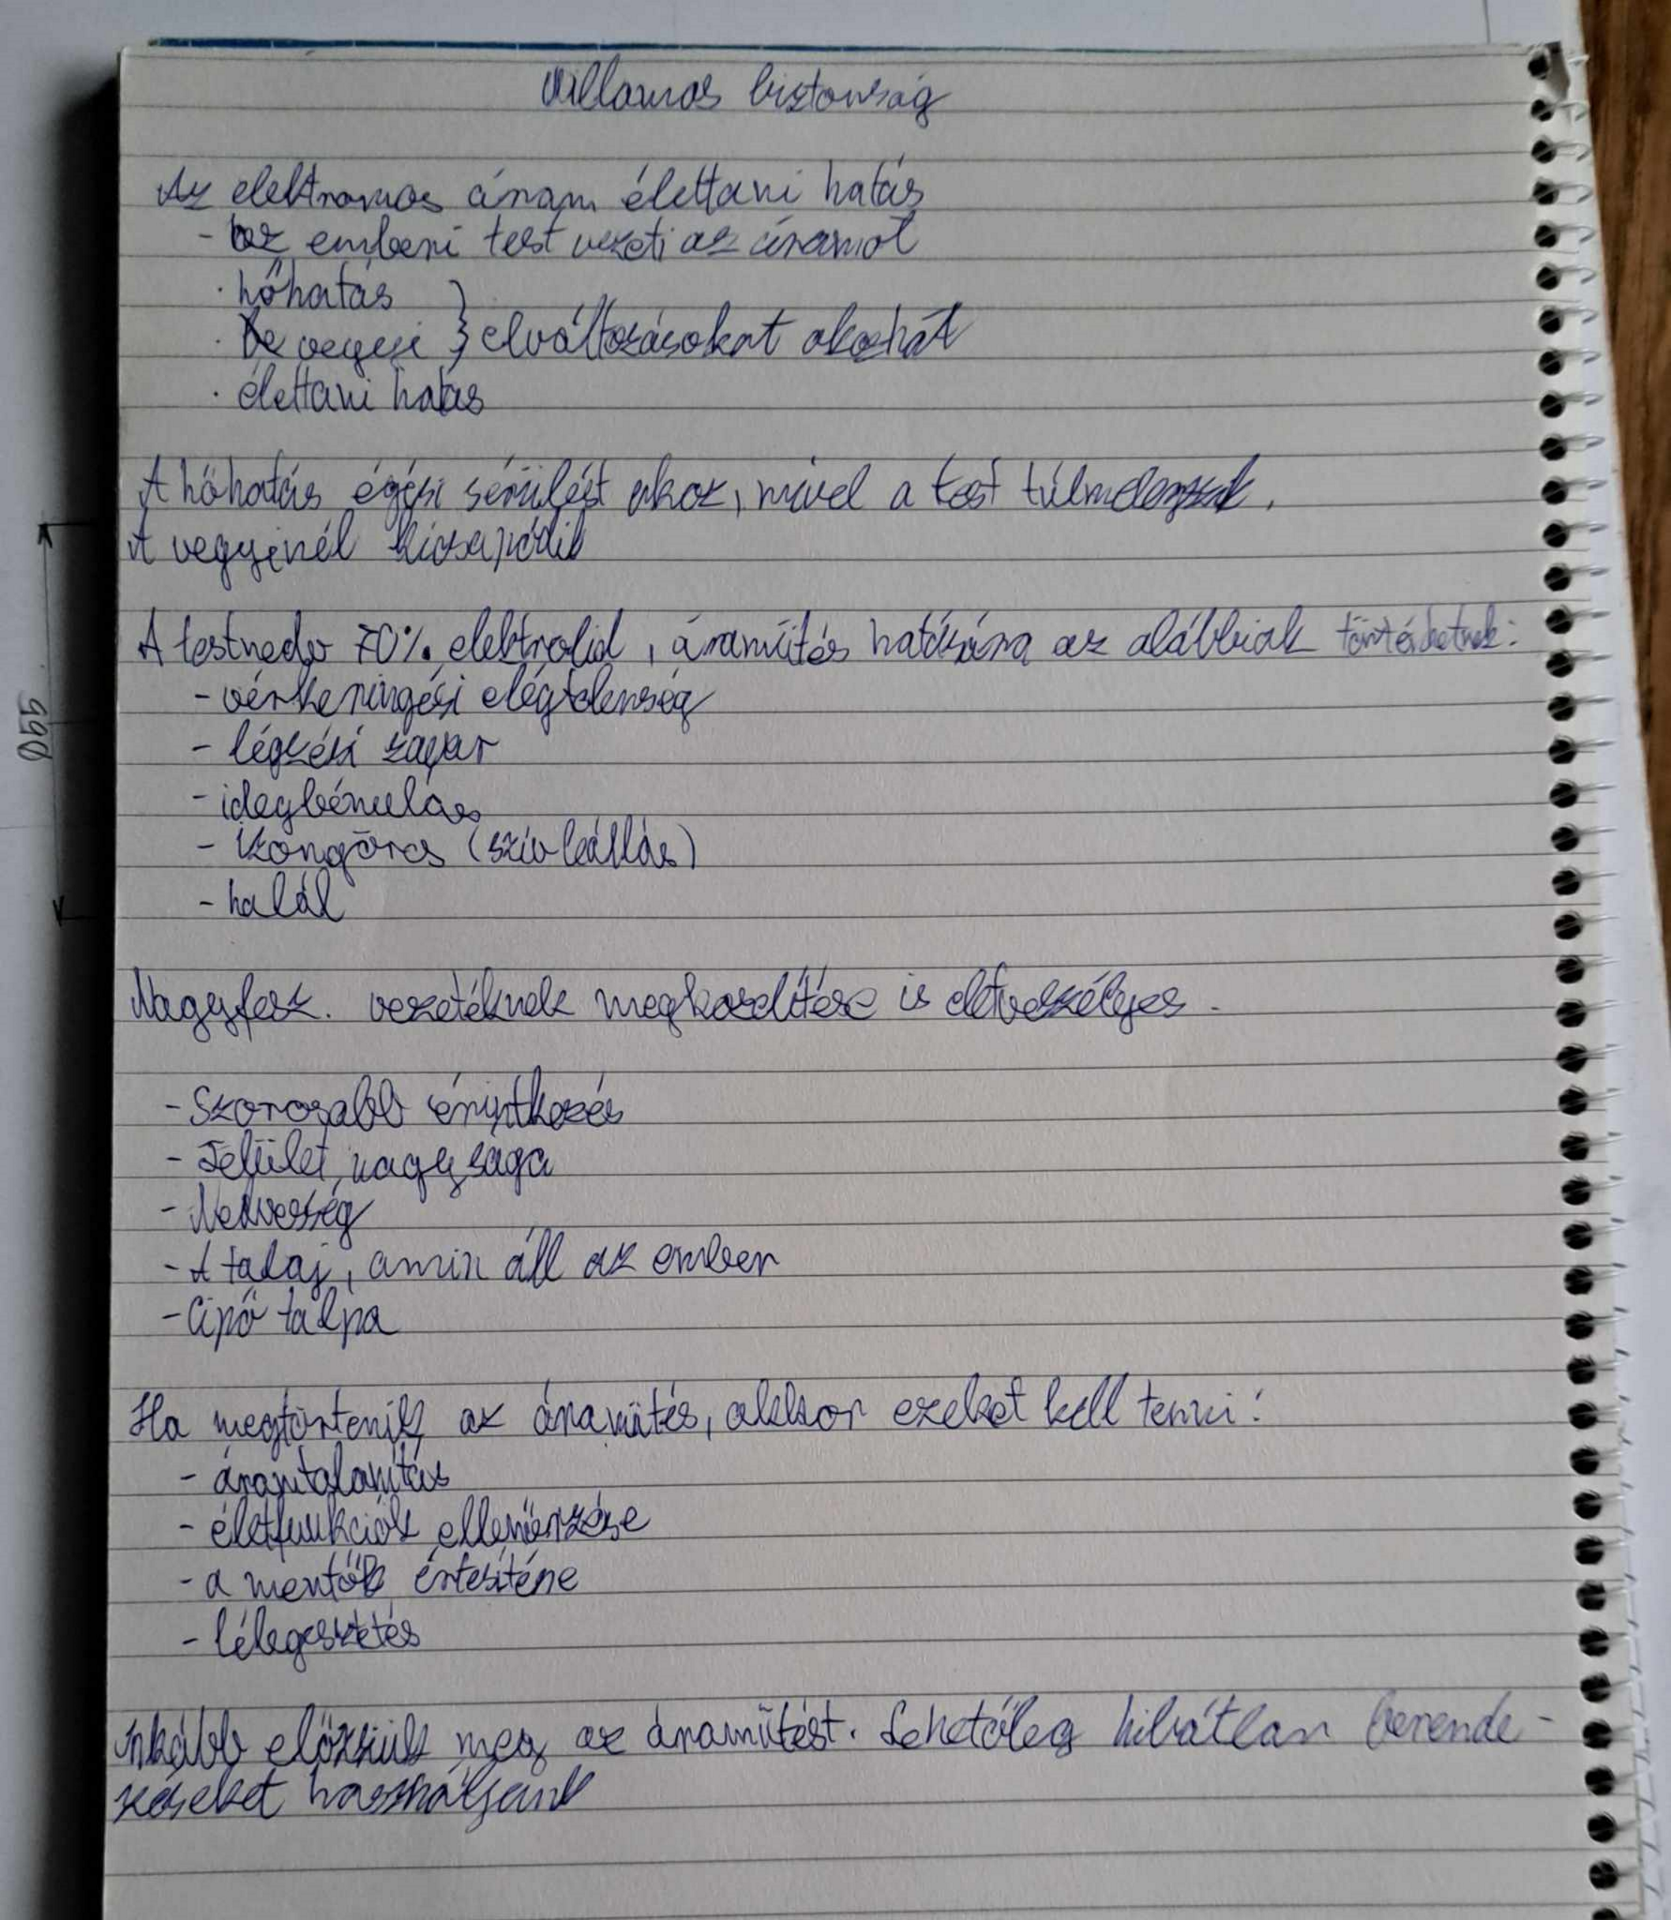 Villamos biztonság
Az elektromos áram élettani hatás
- az emberi test vezeti az áramot
· hőhatás
· vegyi } elváltozásokat okozhat
· élettani hatás
A hőhatás égési sérülést okoz, mivel a test túlmelegszik.
A vegyinél kicsapódik
A testnedv 70% elektrolid, áramütés hatására az alábbiak történhetnek:
- vérkeringési elégtelenség
- légzési zavar
- idegbénulás
- izomgörcs (szívleállás)
- halál
Nagyfesz. vezetéknek megközelítése is életveszélyes.
- Szorosabb érintkezés
- Felület nagysága
- Nedvesség
- A talaj, amin áll az ember
- Cipő talpa
Ha megtörténik az áramütés, akkor ezeket kell tenni:
- áramtalanítás
- életfunkciók ellenőrzése
- a mentők értesítése
- lélegeztetés
Inkább előzzük meg az áramütést. Lehetőleg hibátlan berende-
zéseket használjunk
055